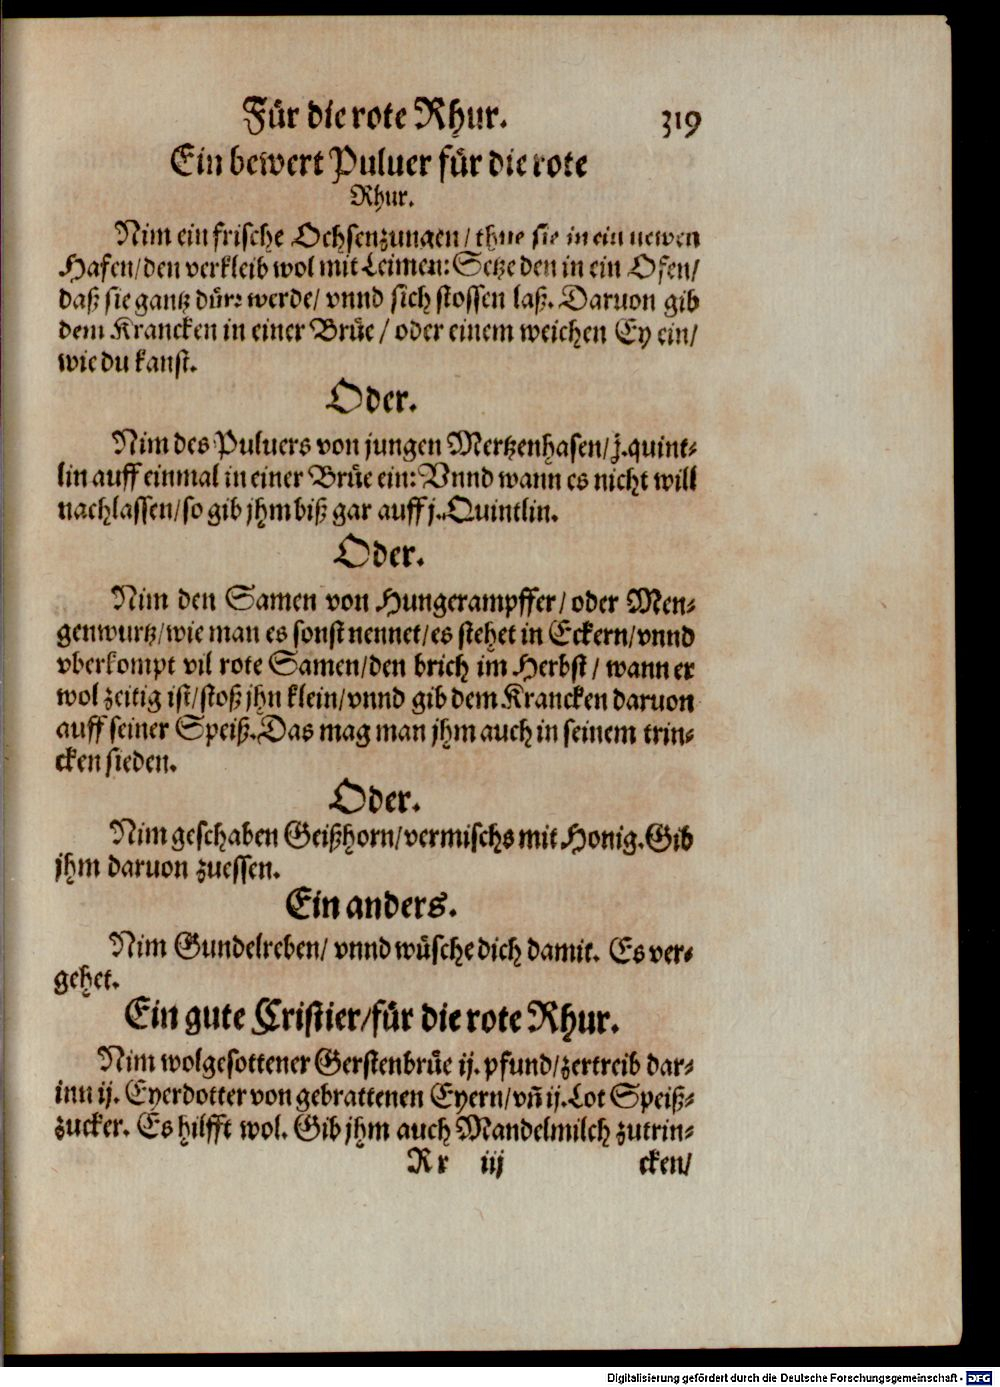 Für die rote Rhur. 319
Ein bewert Puluer für die rote
Rhur.
Nim ein frische Ochsenzungen/ thue sie in ein newen
Hafen/ den verkleib wol mit Leimen: Setze den in ein Ofen/
daß sie gantz dürꝛ werde/ vnnd sich stossen laß. Daruon gib
dem Krancken in einer Brüe/ oder einem weichen Ey ein/
wie du kanst.
Oder.
Nim des Puluers von jungen Mertzenhasen/ quint⸗
lin auff einmal in einer Brüe ein: Vnnd wann es nicht will
nachlassen/ so gib jhm biß gar auff j. Quintlin.
Oder.
Nim den Samen von Hungerampffer/ oder Men⸗
genwurtz/ wie man es sonst nennet/ es stehet in Eckern/ vnnd
vberkompt vil rote Samen/ den brich im Herbst/ wann er
wol zeitig ist/ stoß jhn klein/ vnnd gib dem Krancken daruon
auff seiner Speiß. Das mag man jhm auch in seinem trin⸗
cken sieden.
Oder.
Nim geschaben Geißhorn/ vermischs mit Honig. Gib
jhm daruon zuessen.
Ein anders.
Nim Gundelreben/ vnnd wüsche dich damit. Es ver⸗
gehet.
Ein gute Cristier/ für die rote Rhur.
Nim wolgesottener Gerstenbrüe ij. pfund/ zertreib dar⸗
inn ij. Eyerdotter von gebrattenen Eyern/ vñ ij. Lot Speiß⸗
zucker. Es hilfft wol. Gib jhm auch Mandelmilch zutrin⸗
Rr iij cken/
Digitalisierung gefördert durch die Deutsche Forschungsgemeinschaft - DFG